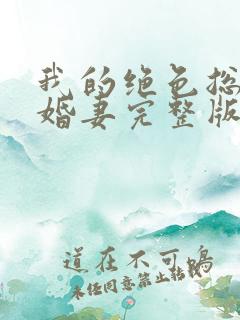 我的绝色总
婚妻完整版
道在不可鸣
未经同意禁止转载